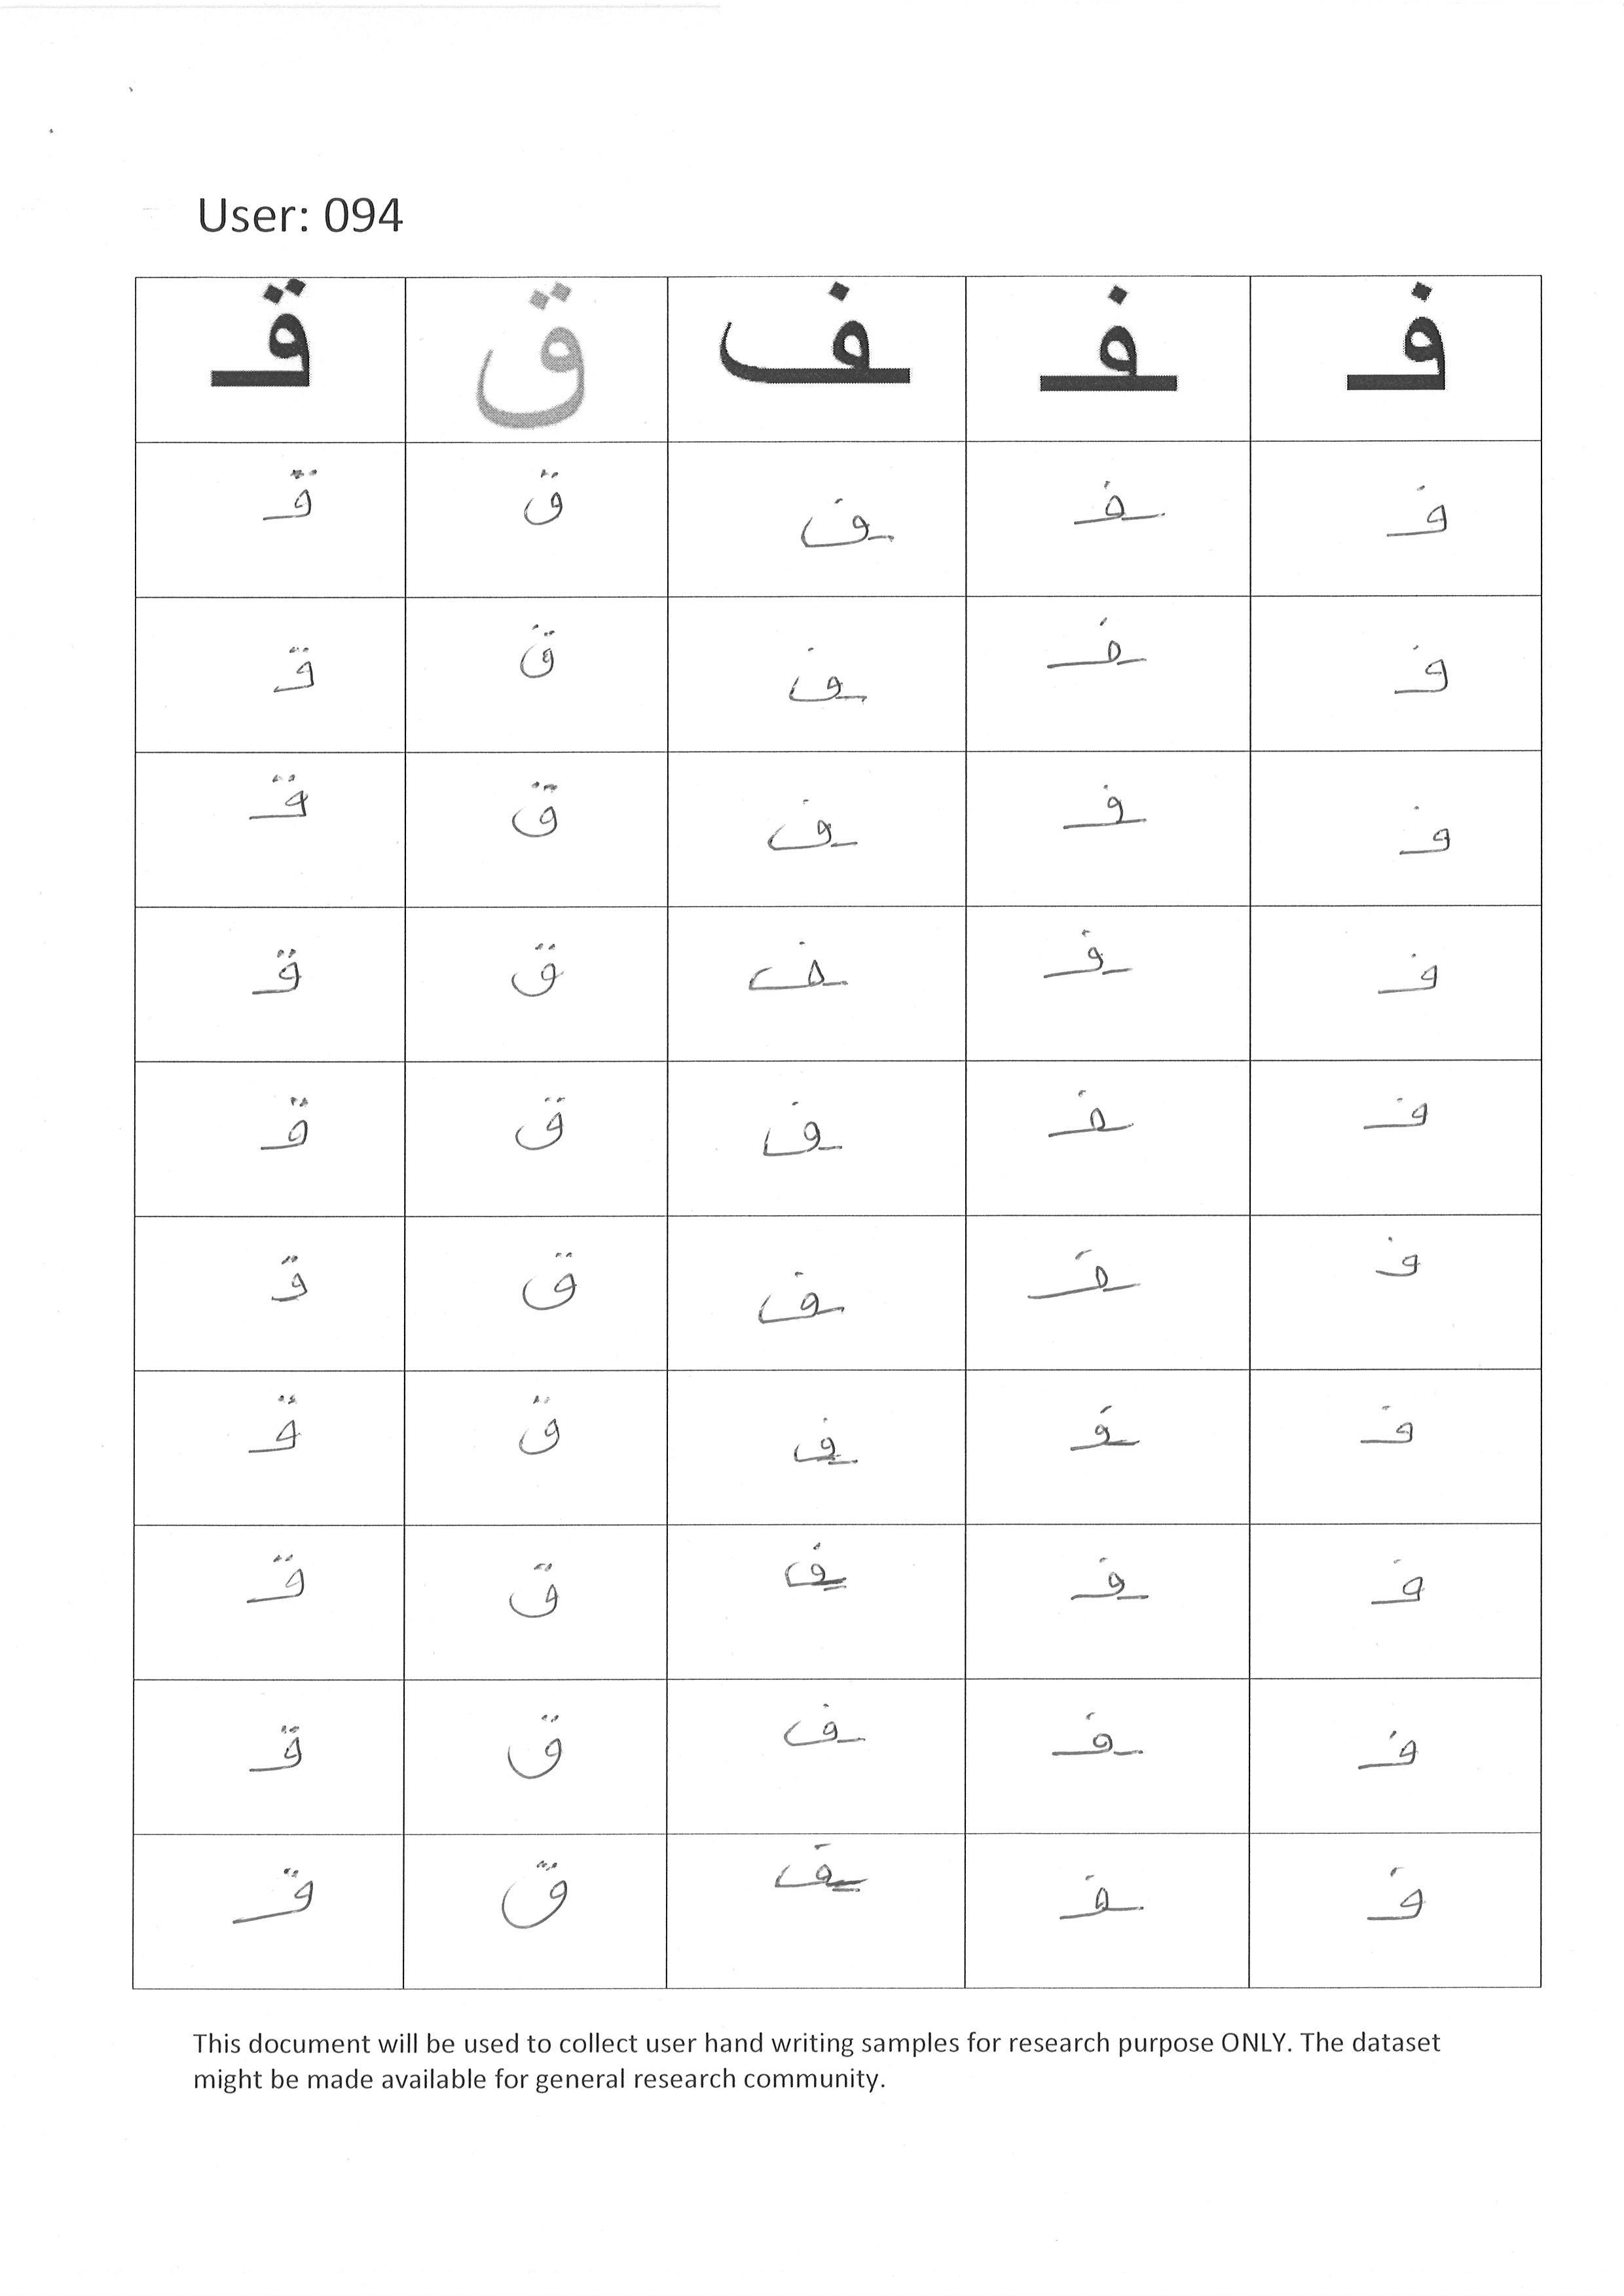 User: 094
قـ ق ـف ـفـ فـ
قـ ق ـف ـفـ فـ
قـ ق ـف ـفـ فـ
قـ ق ـف ـفـ فـ
قـ ق ـف ـفـ فـ
قـ ق ـف ـفـ فـ
قـ ق ـف ـفـ فـ
قـ ق ـف ـفـ فـ
قـ ق ـف ـفـ فـ
قـ ق ـف ـفـ فـ
قـ ق ـف ـفـ فـ
This document will be used to collect user hand writing samples for research purpose ONLY. The dataset
might be made available for general research community.